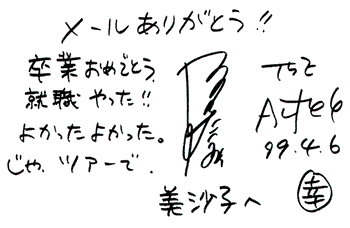 メールありがとう!!
卒業おめでとう
就職やった!!
よかったよかった。
じゃ、ツアーで.
美沙子へ
99.4.6
幸